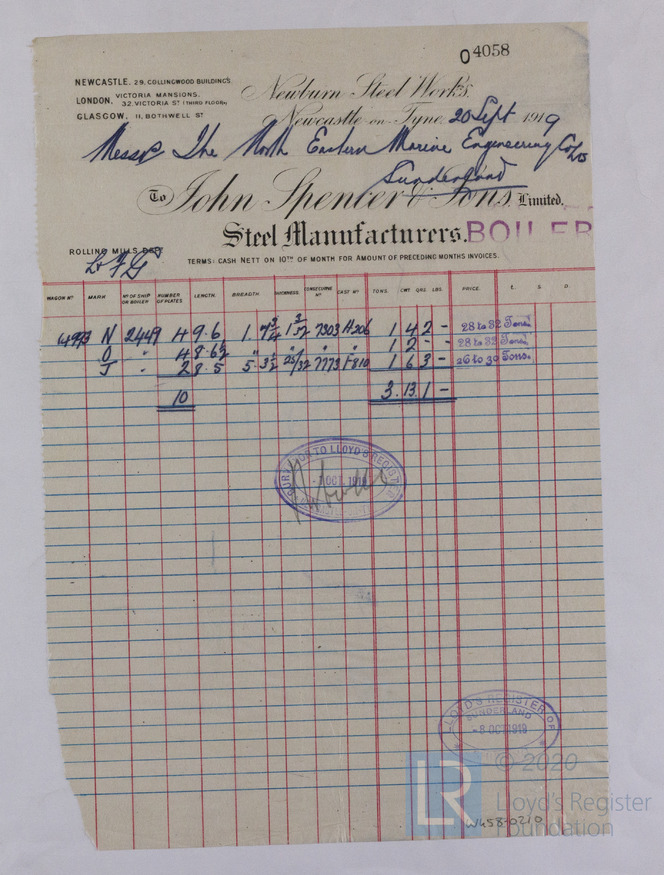 04058
NEWCASTLE. 29, COLLINGWOOD BUILDINGS.
VICTORIA MANSIONS.
LONDON. 32, VICTORIA ST (THIRD FLOOR)
GLASGOW. 11, BOTHWELL ST
Newburn Steel Works.
Newcastle on Tyne 20 Sept 1919
Messrs The North Eastern Marine Engineering Co Ld
Sunderland
To John Spencer & Sons Limited.
Steel Manufacturers. BOILER
ROLLING MILLS DEPT
TERMS: CASH NETT ON 10TH OF MONTH FOR AMOUNT OF PRECEDING MONTHS INVOICES.
WAGON No MARK No OF SHIP OR BOILER NUMBER OF PLATES LENGTH. BREADTH. THICKNESS. CONSECUTIVE No CAST No TONS. CWT QRS. LBS. PRICE. £. S. D.
N 2449 4 9.6 1. 7 3/4 1 3/32 7303 H206 1 4 2 - 28 to 32 Tons.
O " 4 8.6 1/2 " " " " 1 2 - - 28 to 32 Tons.
J " 2 8.5 5.3 1/2 25/32 7773 F810 1 6 3 - 26 to 30 Tons.
10 3.13.1 -
SURVEYOR TO LLOYD'S REGISTER
1 OCT. 1919
LLOYD'S REGISTER OF
SUNDERLAND
-8 OCT 1919
LR
© 2020
Lloyd's Register
Foundation
W458-0210